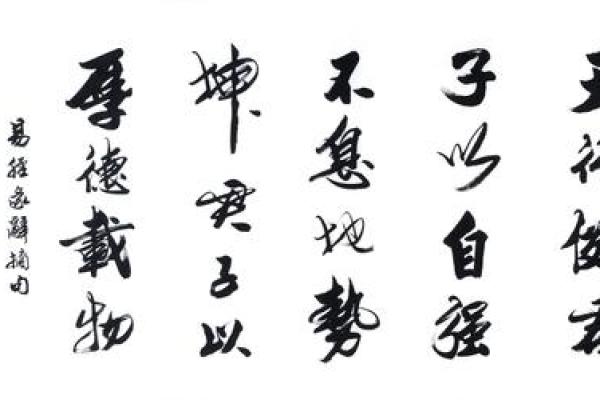 天行健君
子以自强
不息地勢
坤君子以
厚德載物
易經象辭摘句